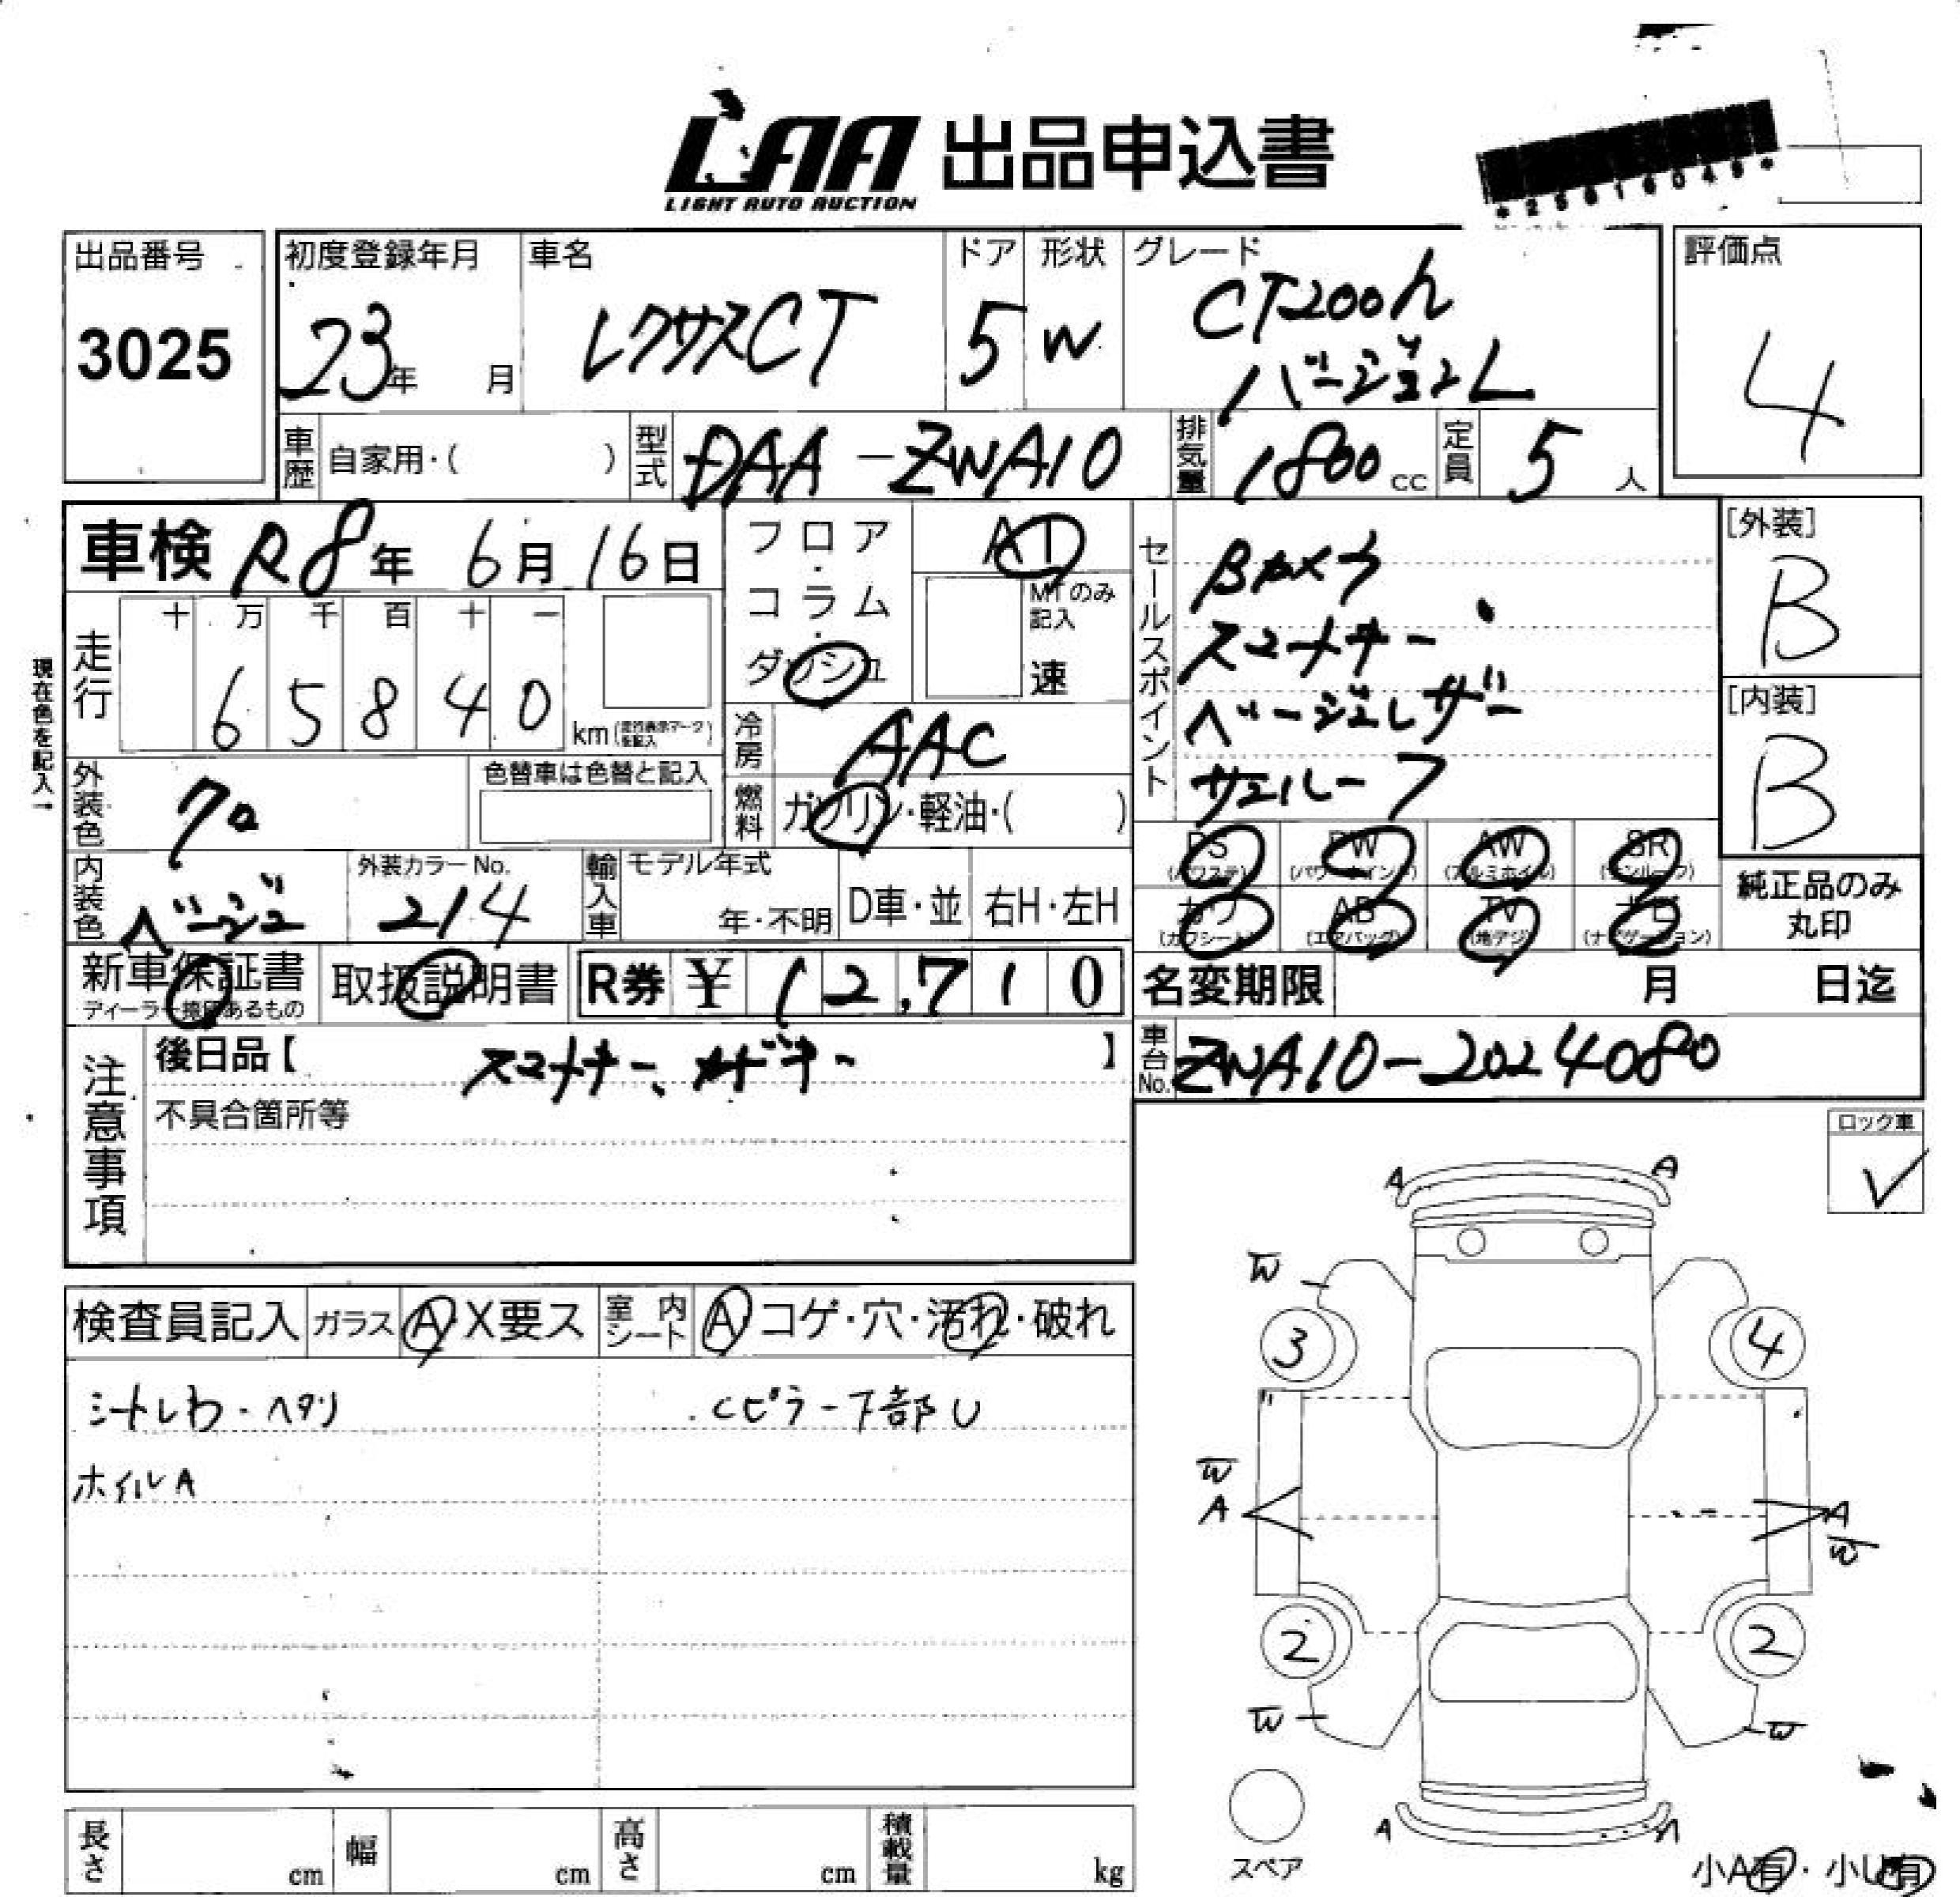 LAA 出品申込書
LIGHT AUTO AUCTION
*25616049*
出品番号
3025
初度登録年月
23年 月
車名
レクサスCT
ドア
5
形状
W
グレード
CT200h
バージョンL
評価点
4
車歴 自家用・( )
型式 DAA-ZWA10
排気量 1800cc
定員 5人
車検 R8年 6月 16日
フロア・コラム・ダッシュ
AT
MTのみ記入
速
セールスポイント
Bカメラ
スマートキー
ベージュレザー
サンルーフ
[外装]
B
[内装]
B
現在色を記入→
走行
十 万 千 百 十 一
6 5 8 4 0
km(走行表示マークを記入)
冷房 AAC
燃料 ガソリン・軽油・( )
外装色 クロ
色替車は色替と記入
内装色 ベージュ
外装カラーNo.
214
輸入車
モデル年式
年・不明
D車・並
右H・左H
PS PW AW SR
(パワステ) (パワーウインド) (アルミホイル) (サンルーフ)
カワ AB TV ナビ
(カワシート) (エアバッグ) (地デジ) (ナビゲーション)
純正品のみ
丸印
新車保証書
ディーラー捺印あるもの
取扱説明書
R券 ¥12,710
名変期限 月 日迄
注意事項
後日品【 】
不具合箇所等
車台No. ZWA10-2024080
ロック車
✓
検査員記入
ガラス A X要ス
室内シート A コゲ・穴・汚れ・破れ
シートしわ・ヘタリ
Cピラー下部U
ホイルA
A A
W
3 4
W
A A
W
2 2
W W
A A
スペア
小A有・小U有
長さ cm
幅 cm
高さ cm
積載量 kg